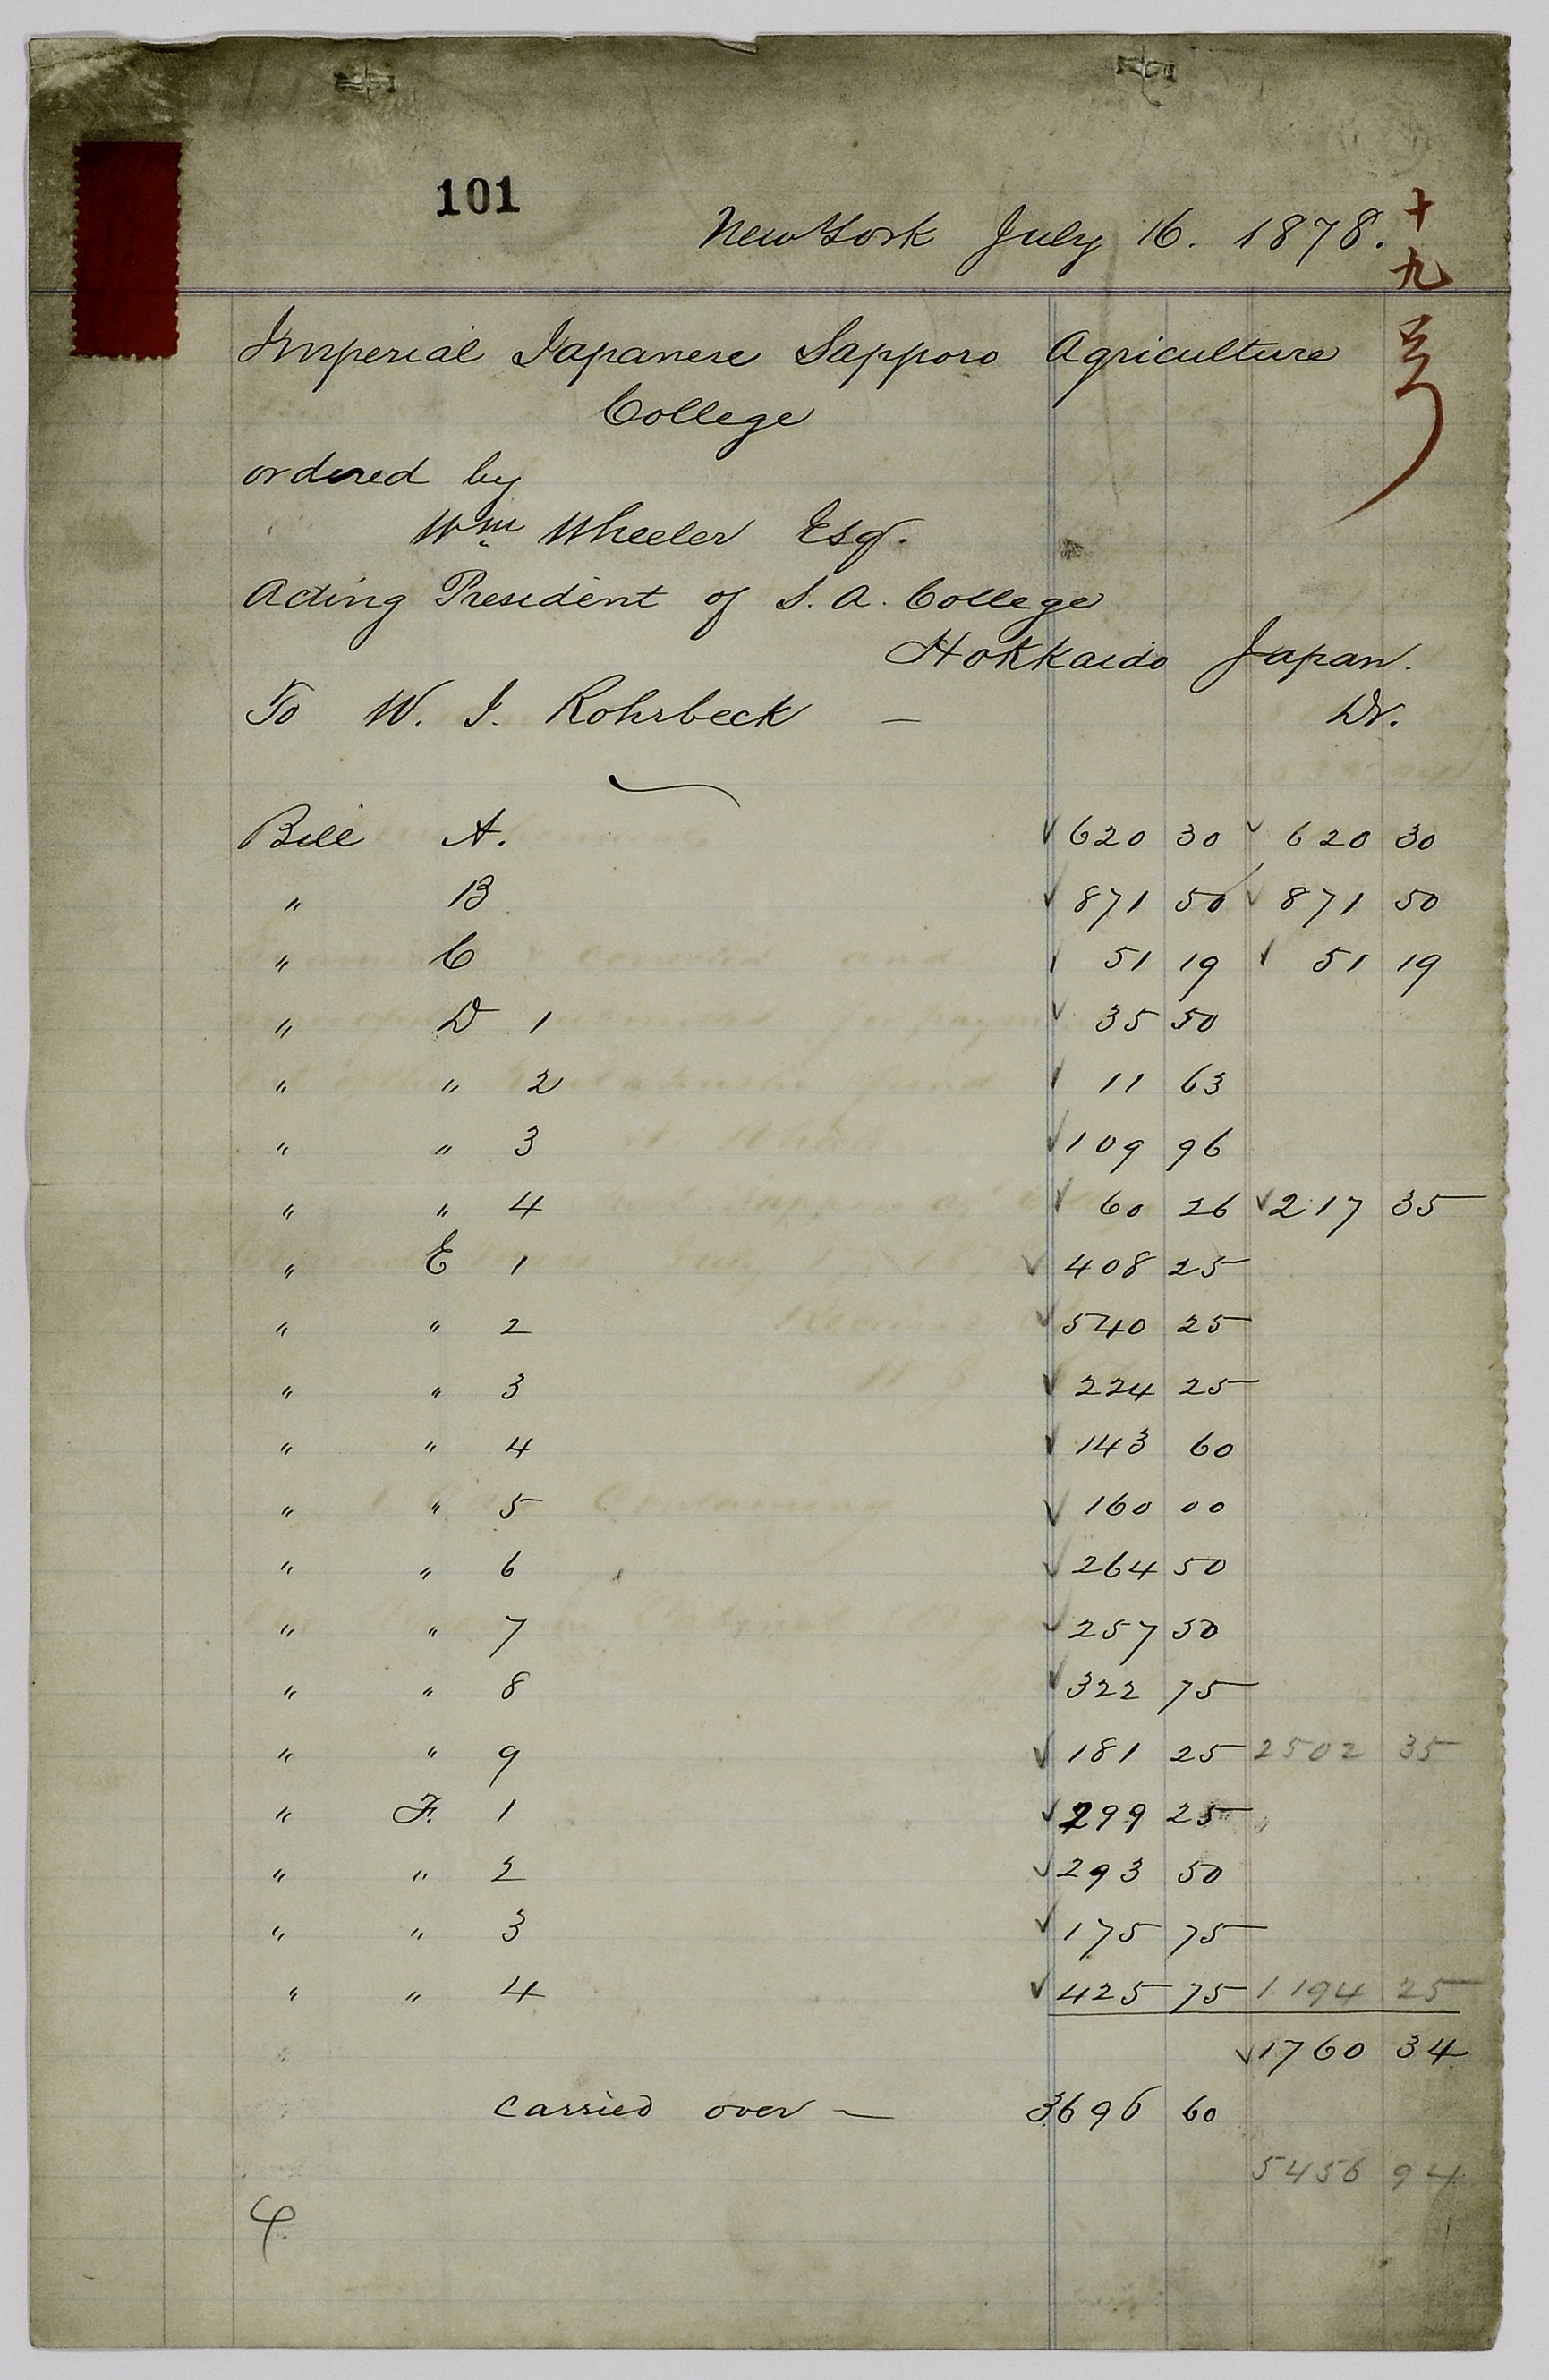 101
New York July 16. 1878.
十九号
Imperial Japanese Sapporo Agriculture
College
ordered by
Wm Wheeler Esq.
Acting President of S. A. College
Hokkaido Japan.
To W. J. Rohrbeck — Dr.
Bill A. 620 30 620 30
" B 871 50 871 50
" C 51 19 51 19
" D 1 35 50
" " 2 11 63
" " 3 109 96
" " 4 60 26 217 35
" E 1 408 25
" " 2 540 25
" " 3 224 25
" " 4 143 60
" " 5 160 00
" " 6 264 50
" " 7 257 50
" " 8 322 75
" " 9 181 25 2502 35
" F. 1 299 25
" " 2 293 50
" " 3 175 75
" " 4 425 75 1.194 25
1760 34
carried over — 3696 60
5456 94